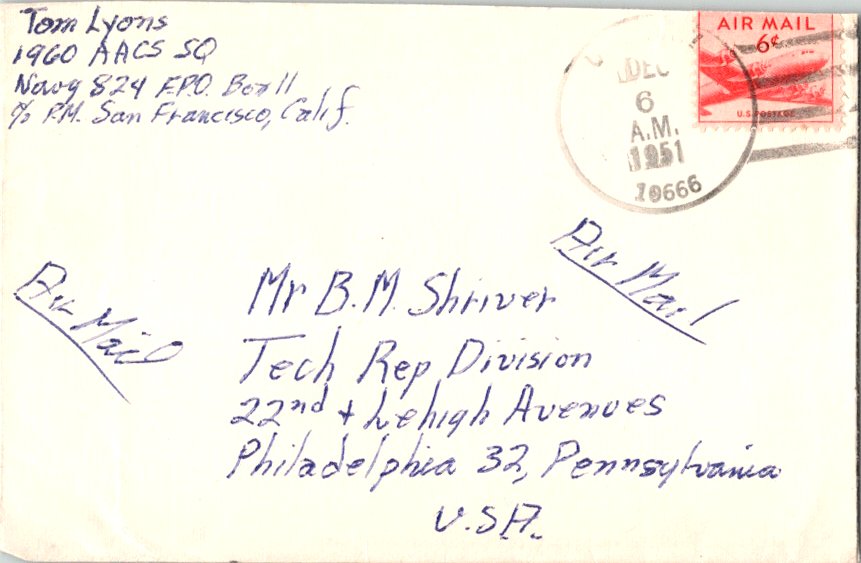 Tom Lyons
1960 AACS SQ
Navy 824 F.P.O. Box 11
c/o P.M. San Francisco, Calif.
AIR MAIL
6¢
U.S. POSTAGE
DEC
6
A.M.
1951
10666
Air Mail
Air Mail
Mr B.M. Shriver
Tech Rep Division
22nd + Lehigh Avenues
Philadelphia 32, Pennsylvania
U.S.A.